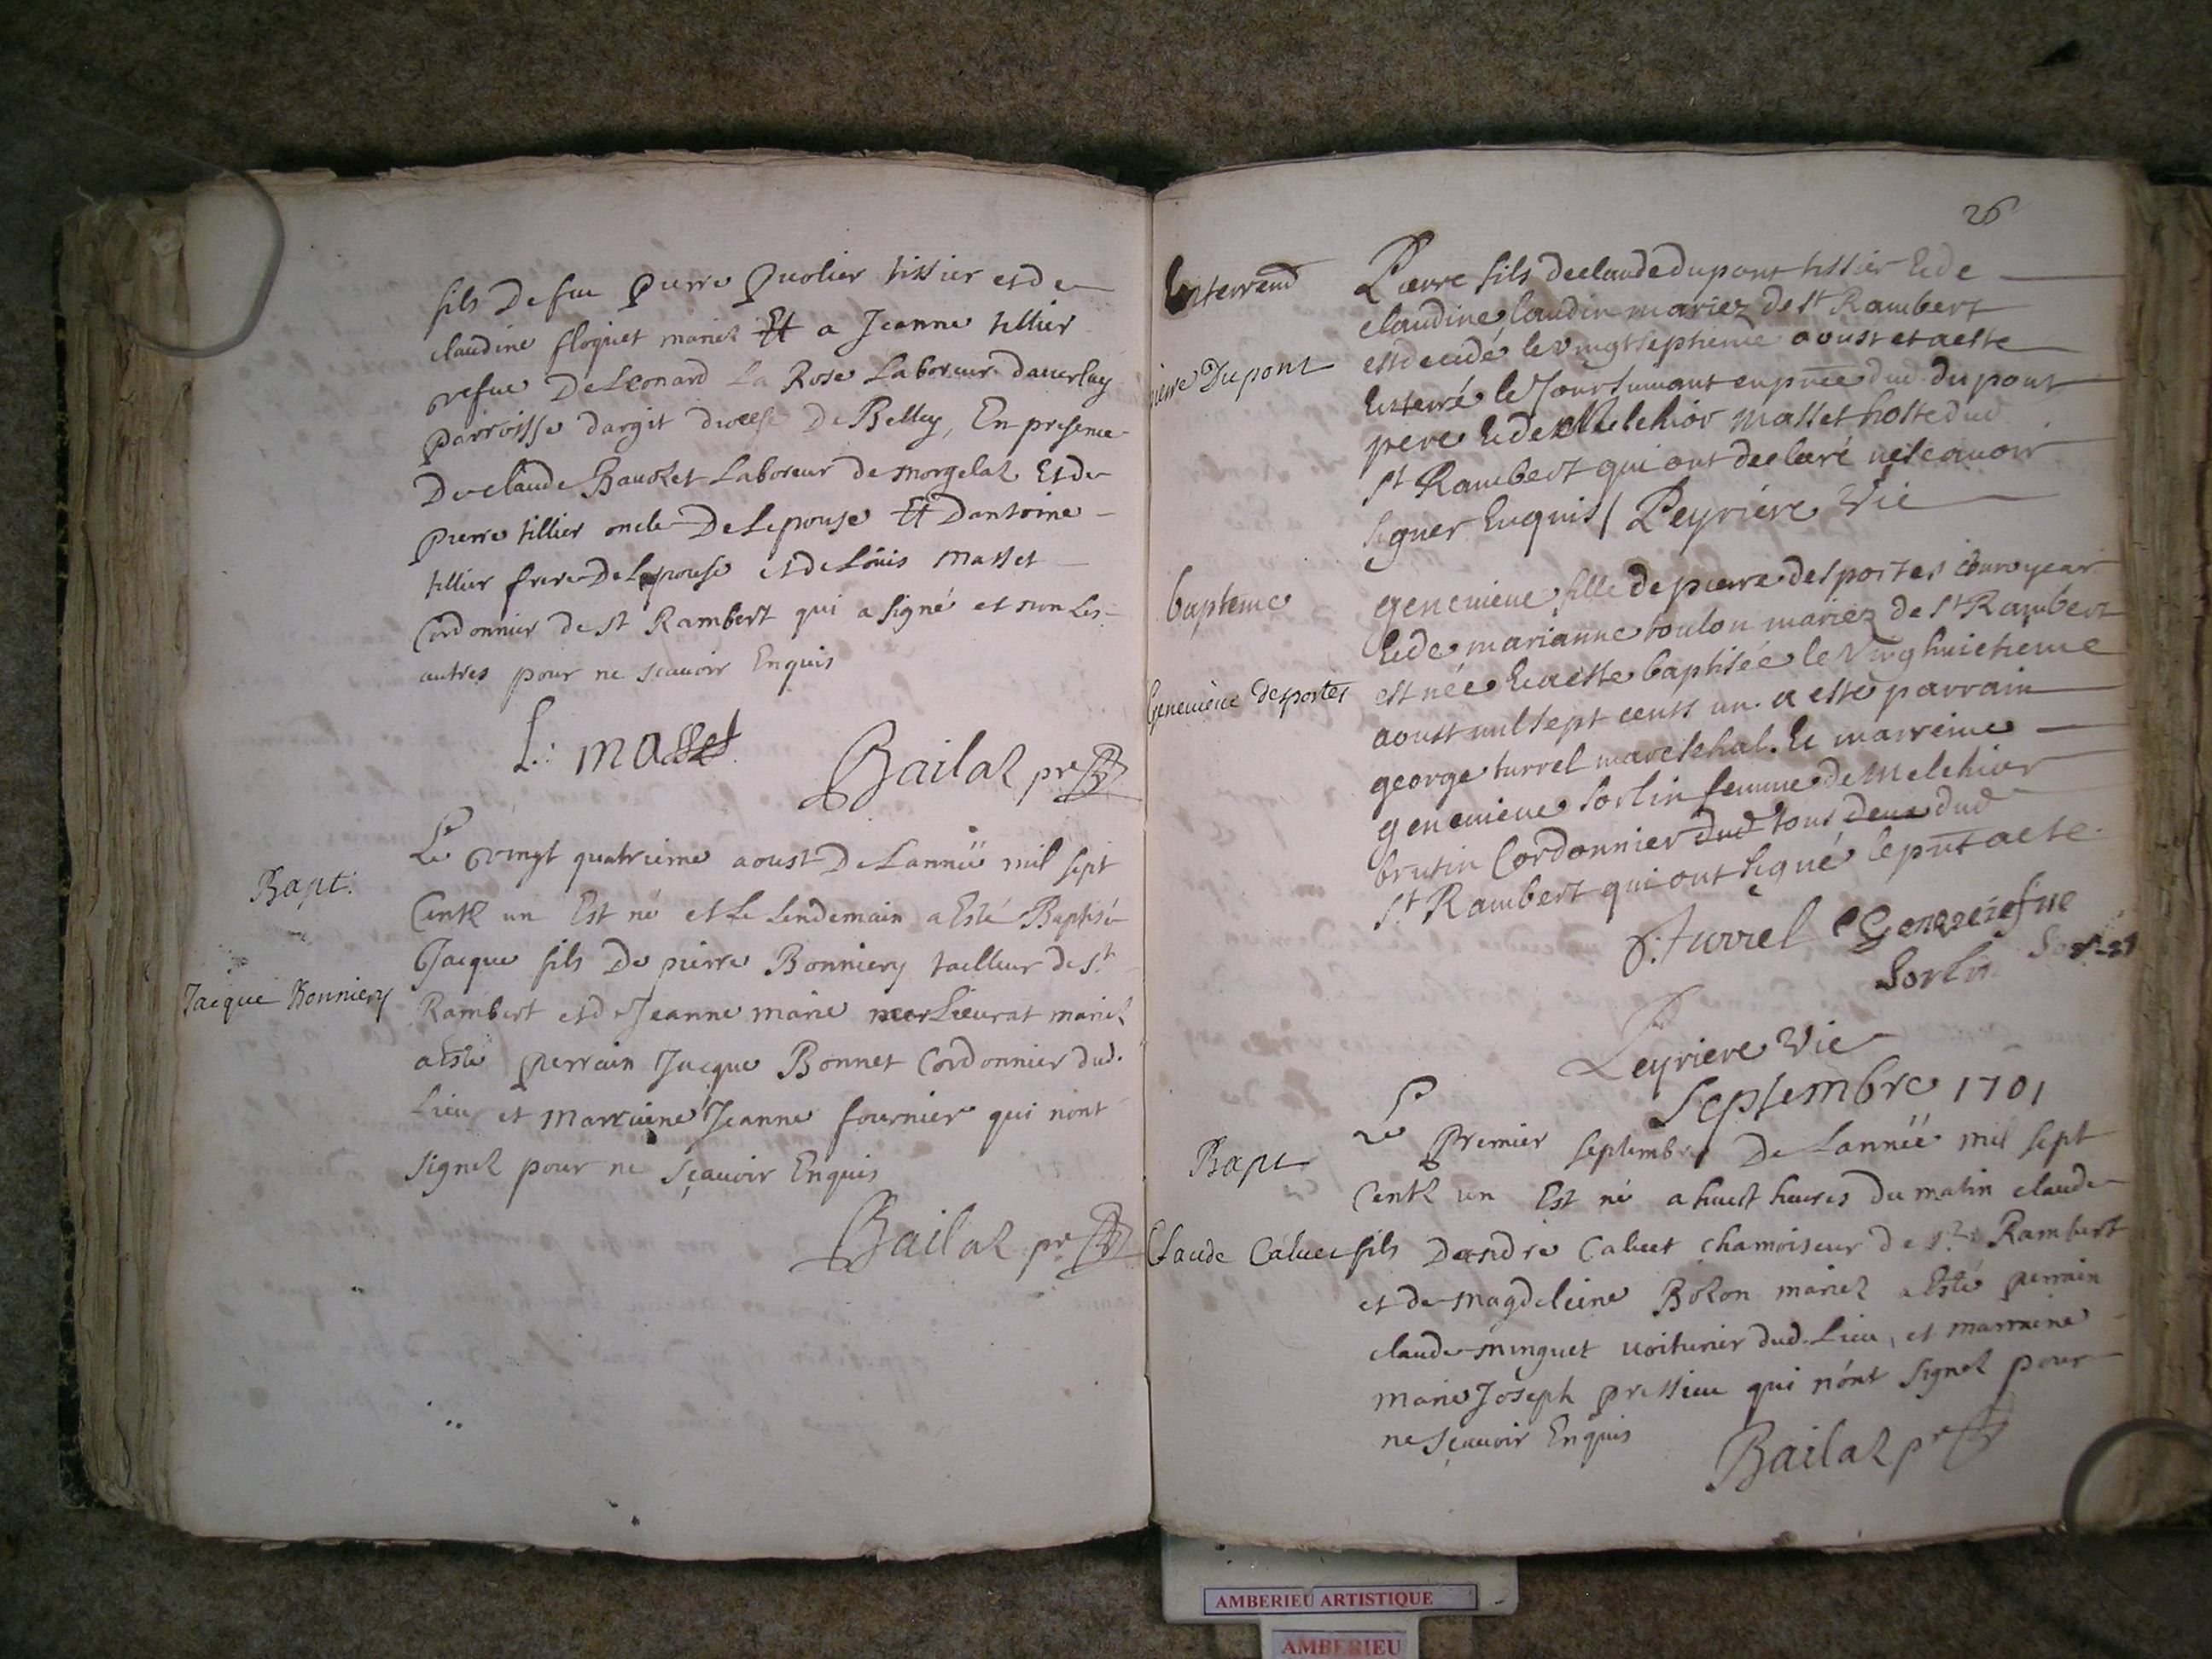 fils De feu Pierre Quolier tissier et de
claudine floquet mariez Et a Jeanne tillier
vefue De Leonard La Rose Laboreur
parroisse dargit diocese De Belley, En presence
De claude Bauozet Laboreur de morgelaz Et de
pierre tillier oncle De Lepouse Et Dantoine
tillier frere De Lepouse et de Loüis Masset
Cordonnier de st Rambert qui a signé et non Les
autres pour ne scauoir Enquis
L: masset
Bailaz pr
Bapt:
Jacque Bonniery
Le vingt quatrieme aoust De Lannëe mil sept
Centz un Est né et Le Lendemain a Esté Baptisé
Jacque fils De pierre Bonniery tailleur de st
Rambert et de Jeanne marie merlieurat mariez
a Esté perrain Jacque Bonnet Cordonnier dud.
Lieu et Marraine Jeanne fournier qui nont
signez pour ne sçauoir Enquis
Bailaz pr
26
Enterremt
pierre Dupont
Pierre fils de claude dupont tissier et de
claudine laudin mariez de st Rambert
est decedé le vingt septieme aoust et a este
Enterré le Jour suiuant en pnce dud. dupont
pere et de Melchior Masset hoste dud
st Rambert qui ont declaré ne scauoir
signer Enquis / Peyriere Vic
bapteme
Geneuieue desportes
geneuieue fille de pierre desportes
et de marianne toulon mariez de st Rambert
est née et a este baptisée le vingt huictieme
aoust mil sept cents un. a esté parrain
george turrel mareschal. et marreine
geneuieue sorlin femme de Melchior
brutin Cordonnier dud tous deux dud
st Rambert qui ont signé le pnt acte.
G. Turrel Genneuiefue
Sorlin
Peyriere Vic
Septembre 1701
Bapt
Claude Caluet
Le Premier septembre De Lannëe mil sept
Centz un Est né a huict heures du matin claude
fils Dandré Caluet chamoiseur de st Rambert
et de magdeleine Bozon mariez a Esté perrain
claude minguet voiturier dud. Lieu, et marraine
marie Joseph pressieu qui n'ont signez pour
ne sçauoir Enquis
Bailaz pr
AMBERIEU ARTISTIQUE
AMBERIEU